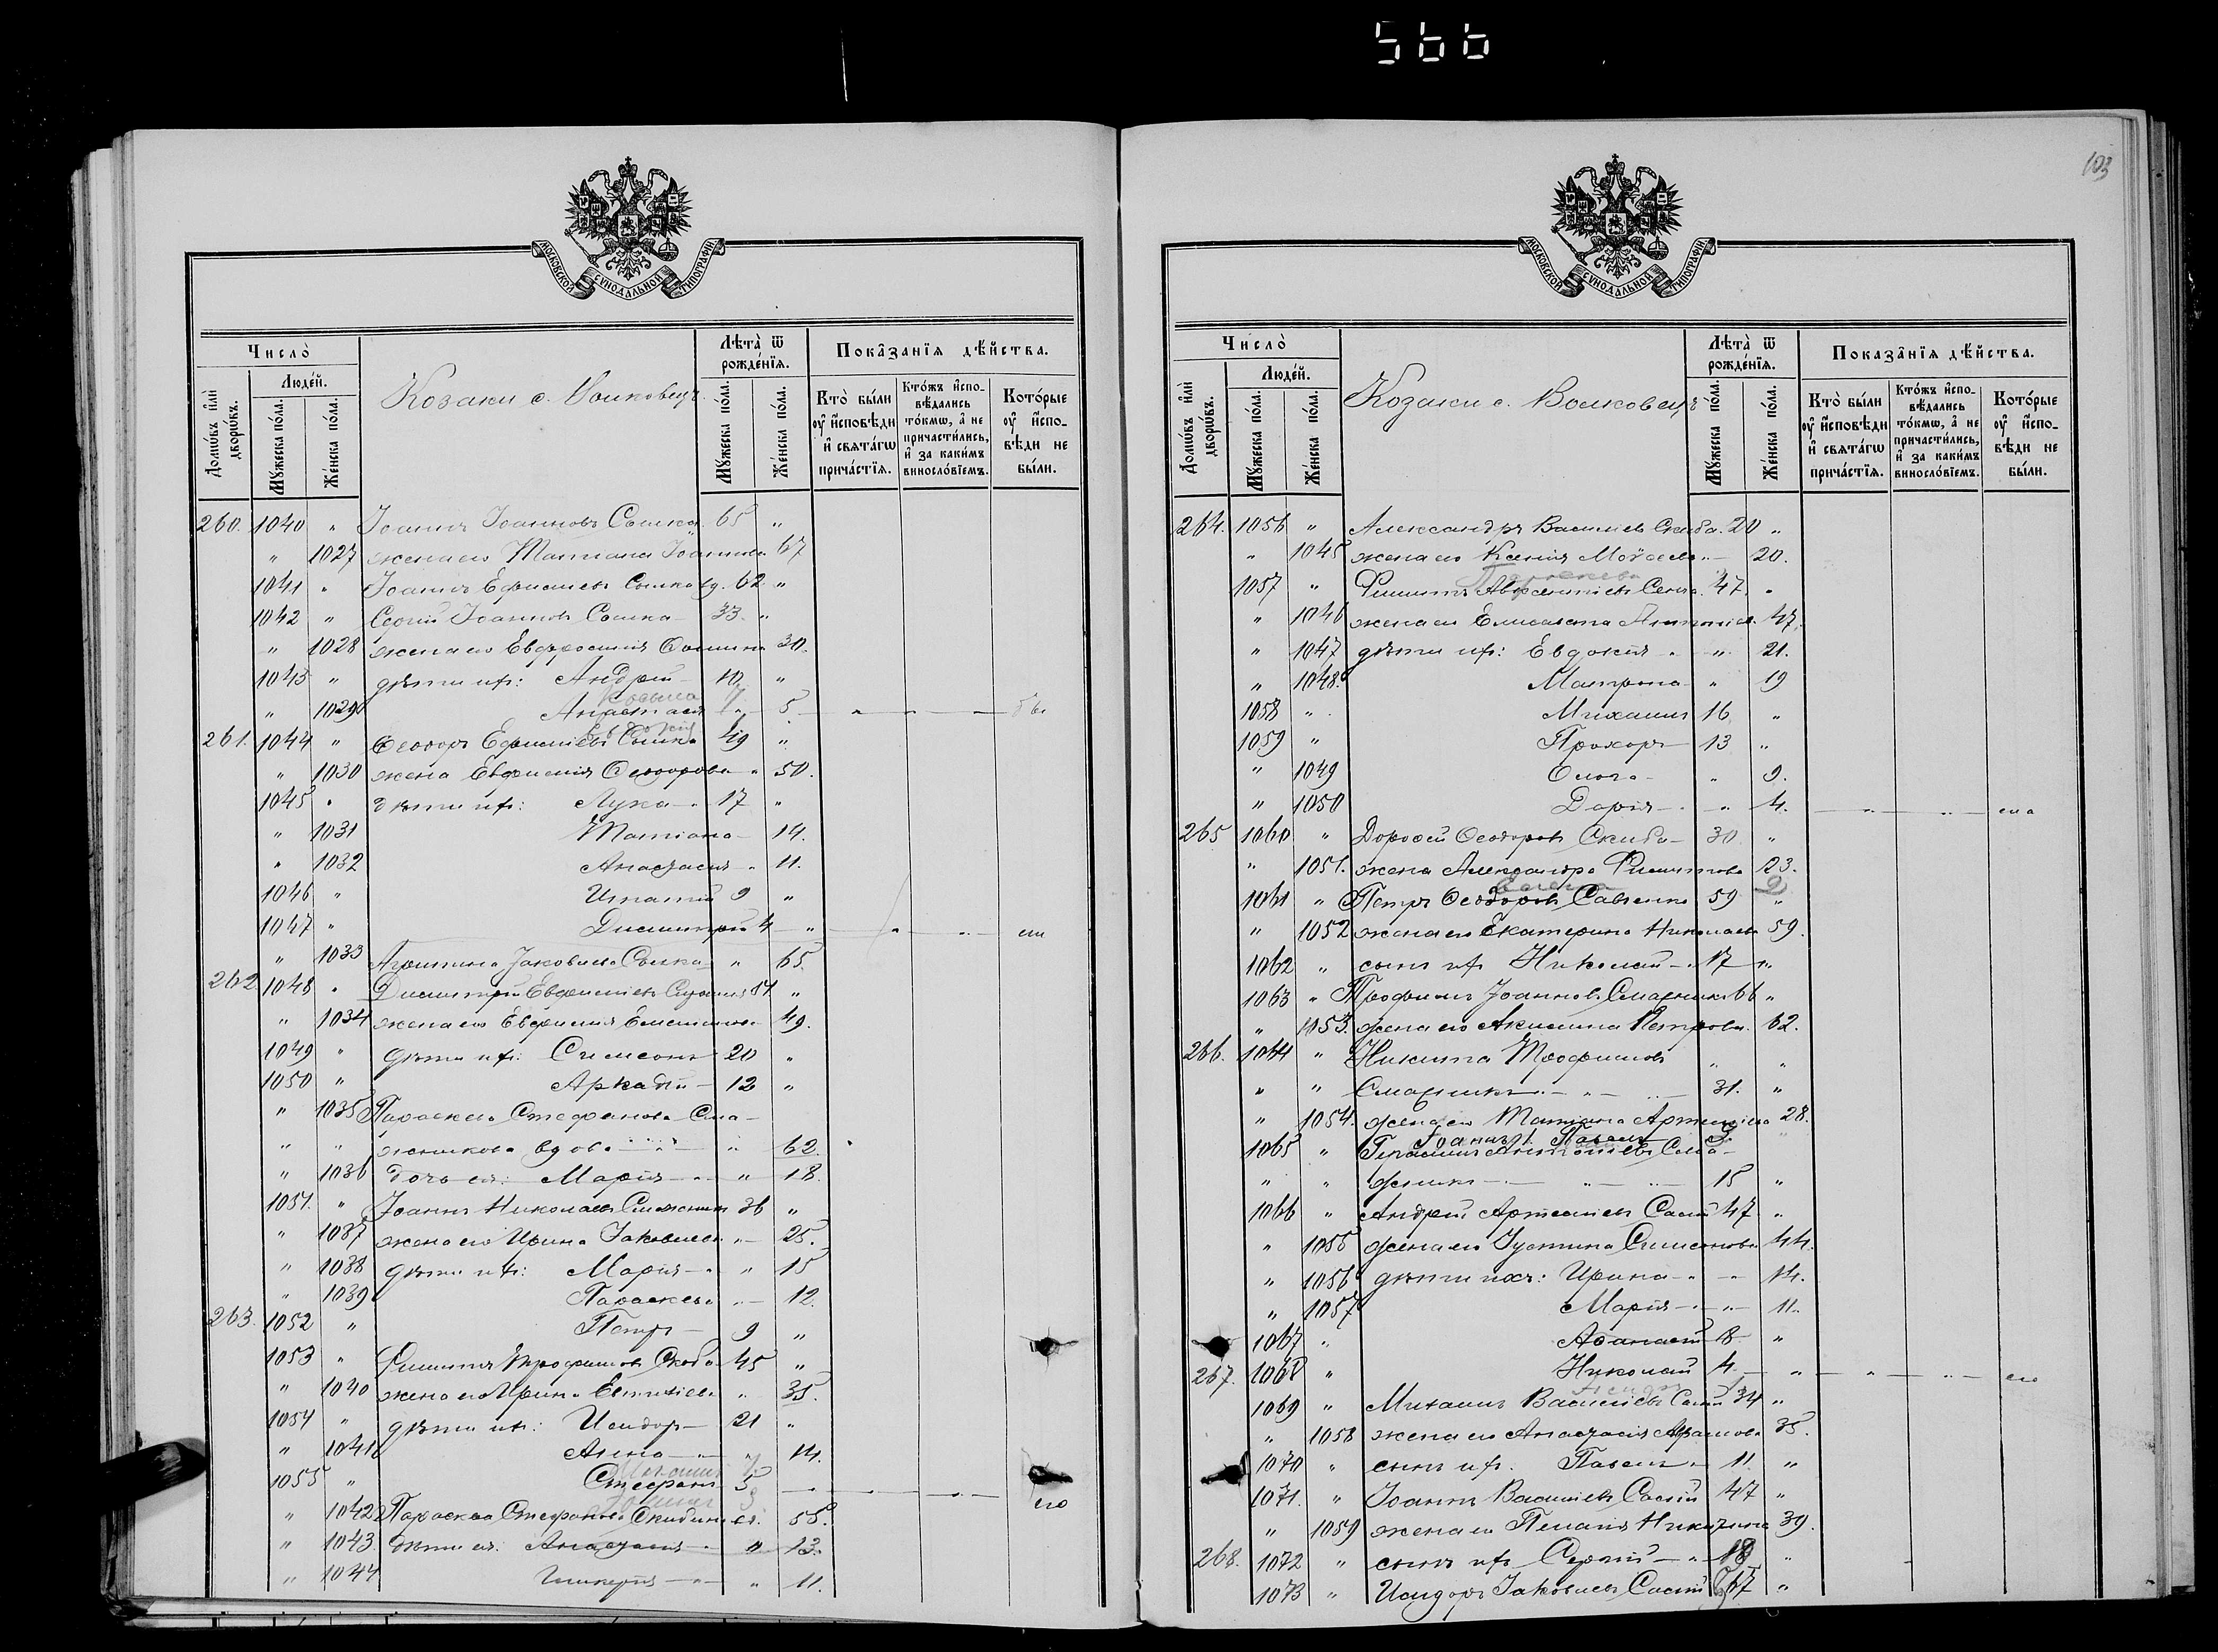 566
103
МОСКОВСКОЙ СѴНОДАЛЬНОЙ ТИПОГРАФІИ
Число̀
Домѡ́въ и҆лѝ дворѡ́въ.
Люде́й.
Мꙋ́жеска по́ла.
Же́нска по́ла.
Козаки с. Волковецъ
Лѣта̀ ѿ рожде́нїѧ.
Мꙋ́жеска по́ла.
Же́нска по́ла.
Показа̑нїѧ дѣ́йства.
Кто̀ бы́ли ᲂу҆ и҆сповѣ́ди и҆ свѧта́гѡ прича́стїѧ.
Кто́жъ и҆спо-вѣ́дались то́кмѡ, а҆ не причасти́лись, и҆ за каки́мъ виносло́вїемъ.
Кото́рые ᲂу҆ и҆спо-вѣ́ди не бы́ли.
260. 1040 " Іоаннъ Іоанновъ Сошка 65 "
" 1027 жена его Татіана Іоаннова 67
1041 " Іоаннъ Ефимiевъ Сошка вд. 62 "
1042 " Сергій Іоанновъ Сошка 33 "
" 1028 жена его Евфросинія 30.
1043 " дѣти ихъ: Андрей 10 "
" 1029 Анастасія " 5
261. 1044 " Ѳеодоръ Ефиміевъ Сошка 49 "
Евдокія
" 1030 жена Евфимія Ѳеодорова " 50.
1045 " дѣти ихъ: Лука 17 "
" 1031 Татіана 14.
" 1032 Анастасія 11.
1046 " Игнатій 9 "
1047 " Димитрій 4 "
" 1033 Іаковлева Сошка " 65.
262. 1048 " Димитрій Евфиміевъ 51 "
" 1034 жена его Евфимія 49.
1049 " дѣти ихъ: Симеонъ 20 "
1050 " Аркадій 12 "
" 1035 Параскева Стефанова Сма-
" " жникова вдова " 62.
" 1036 дочь ея: Марія " 18.
1051. " Іоаннъ Николаевъ Смажникъ 36 "
" 1037 жена его Ирина Іаковлева " 25.
" 1038 дѣти ихъ: Марія " 15
" 1039 Параскева " 12.
263. 1052 " Петръ 9 "
1053 " Филиппъ Трофимовъ Скиба 45 "
" 1040 жена его Ирина " 35.
1054 " дѣти ихъ: Исидоръ 21 "
" 1041 Анна " 14.
1055 " Стефанъ 5
" 1042 Параскева Стефанова Скибина 55.
" 1043. дѣти ея: Анастасія " 13.
" 1044 Гликерія " 11.
МОСКОВСКОЙ СѴНОДАЛЬНОЙ ТИПОГРАФІИ
Число̀
Домѡ́въ и҆лѝ дворѡ́въ.
Люде́й.
Мꙋ́жеска по́ла.
Же́нска по́ла.
Козаки с. Волковецъ
Лѣта̀ ѿ рожде́нїѧ.
Мꙋ́жеска по́ла.
Же́нска по́ла.
Показа̑нїѧ дѣ́йства.
Кто̀ бы́ли ᲂу҆ и҆сповѣ́ди и҆ свѧта́гѡ прича́стїѧ.
Кто́жъ и҆спо-вѣ́дались то́кмѡ, а҆ не причасти́лись, и҆ за каки́мъ виносло́вїемъ.
Кото́рые ᲂу҆ и҆спо-вѣ́ди не бы́ли.
264. 1056 " Александръ Василіевъ Скиба 20 "
" 1045 жена его Ксенія Моѵсеева 20.
1057 " Филиппъ 47. "
" 1046 жена его Елисавета 47.
" 1047 дѣти ихъ: Евдокія " 21.
" 1048. Матрона " 19
1058 " Михаилъ 16 "
1059 " Прохоръ 13 "
" 1049 Ольга " 9.
" 1050 Дарія " 4.
265 1060 " Дороѳей Ѳеодоровъ Скиба 30 "
" 1051. жена Александра Филиппова 23.
Елена 2
1061 " Петръ Ѳеодоровъ Савченко 59 "
" 1052 жена его Екатерина Николаева 59.
1062 " сынъ ихъ Николай 17 "
1063 " Трофимъ Іоанновъ Смажникъ 66 "
" 1053. жена его Акилина Петрова 62.
266. 1064 " Никита Трофимовъ " "
" " Смажникъ 31. "
" 1054. жена его Татіана 28.
Павелъ 3
1065 " Герасимъ Антоніевъ Сма-
" " жникъ 15 "
1066 " Андрей Артемiевъ 47 "
" 1055 жена его Іустина Симеонова 44.
" 1056 дѣти ихъ: Ирина " 14.
" 1057 Марія " 11.
1067 " Аѳанасій 8 "
267. 1068 " Николай 4 "
1069 " Михаилъ Василіевъ 34 "
" 1058 жена его Анастасія 35.
1070 " сынъ ихъ Павелъ 11. "
1071. " Іоаннъ Василіевъ 47 "
" 1059 жена его Пелагія Никитина 39.
268. 1072 " сынъ ихъ Сергій 18 "
1073 " Исидоръ Іаковлевъ 67 "